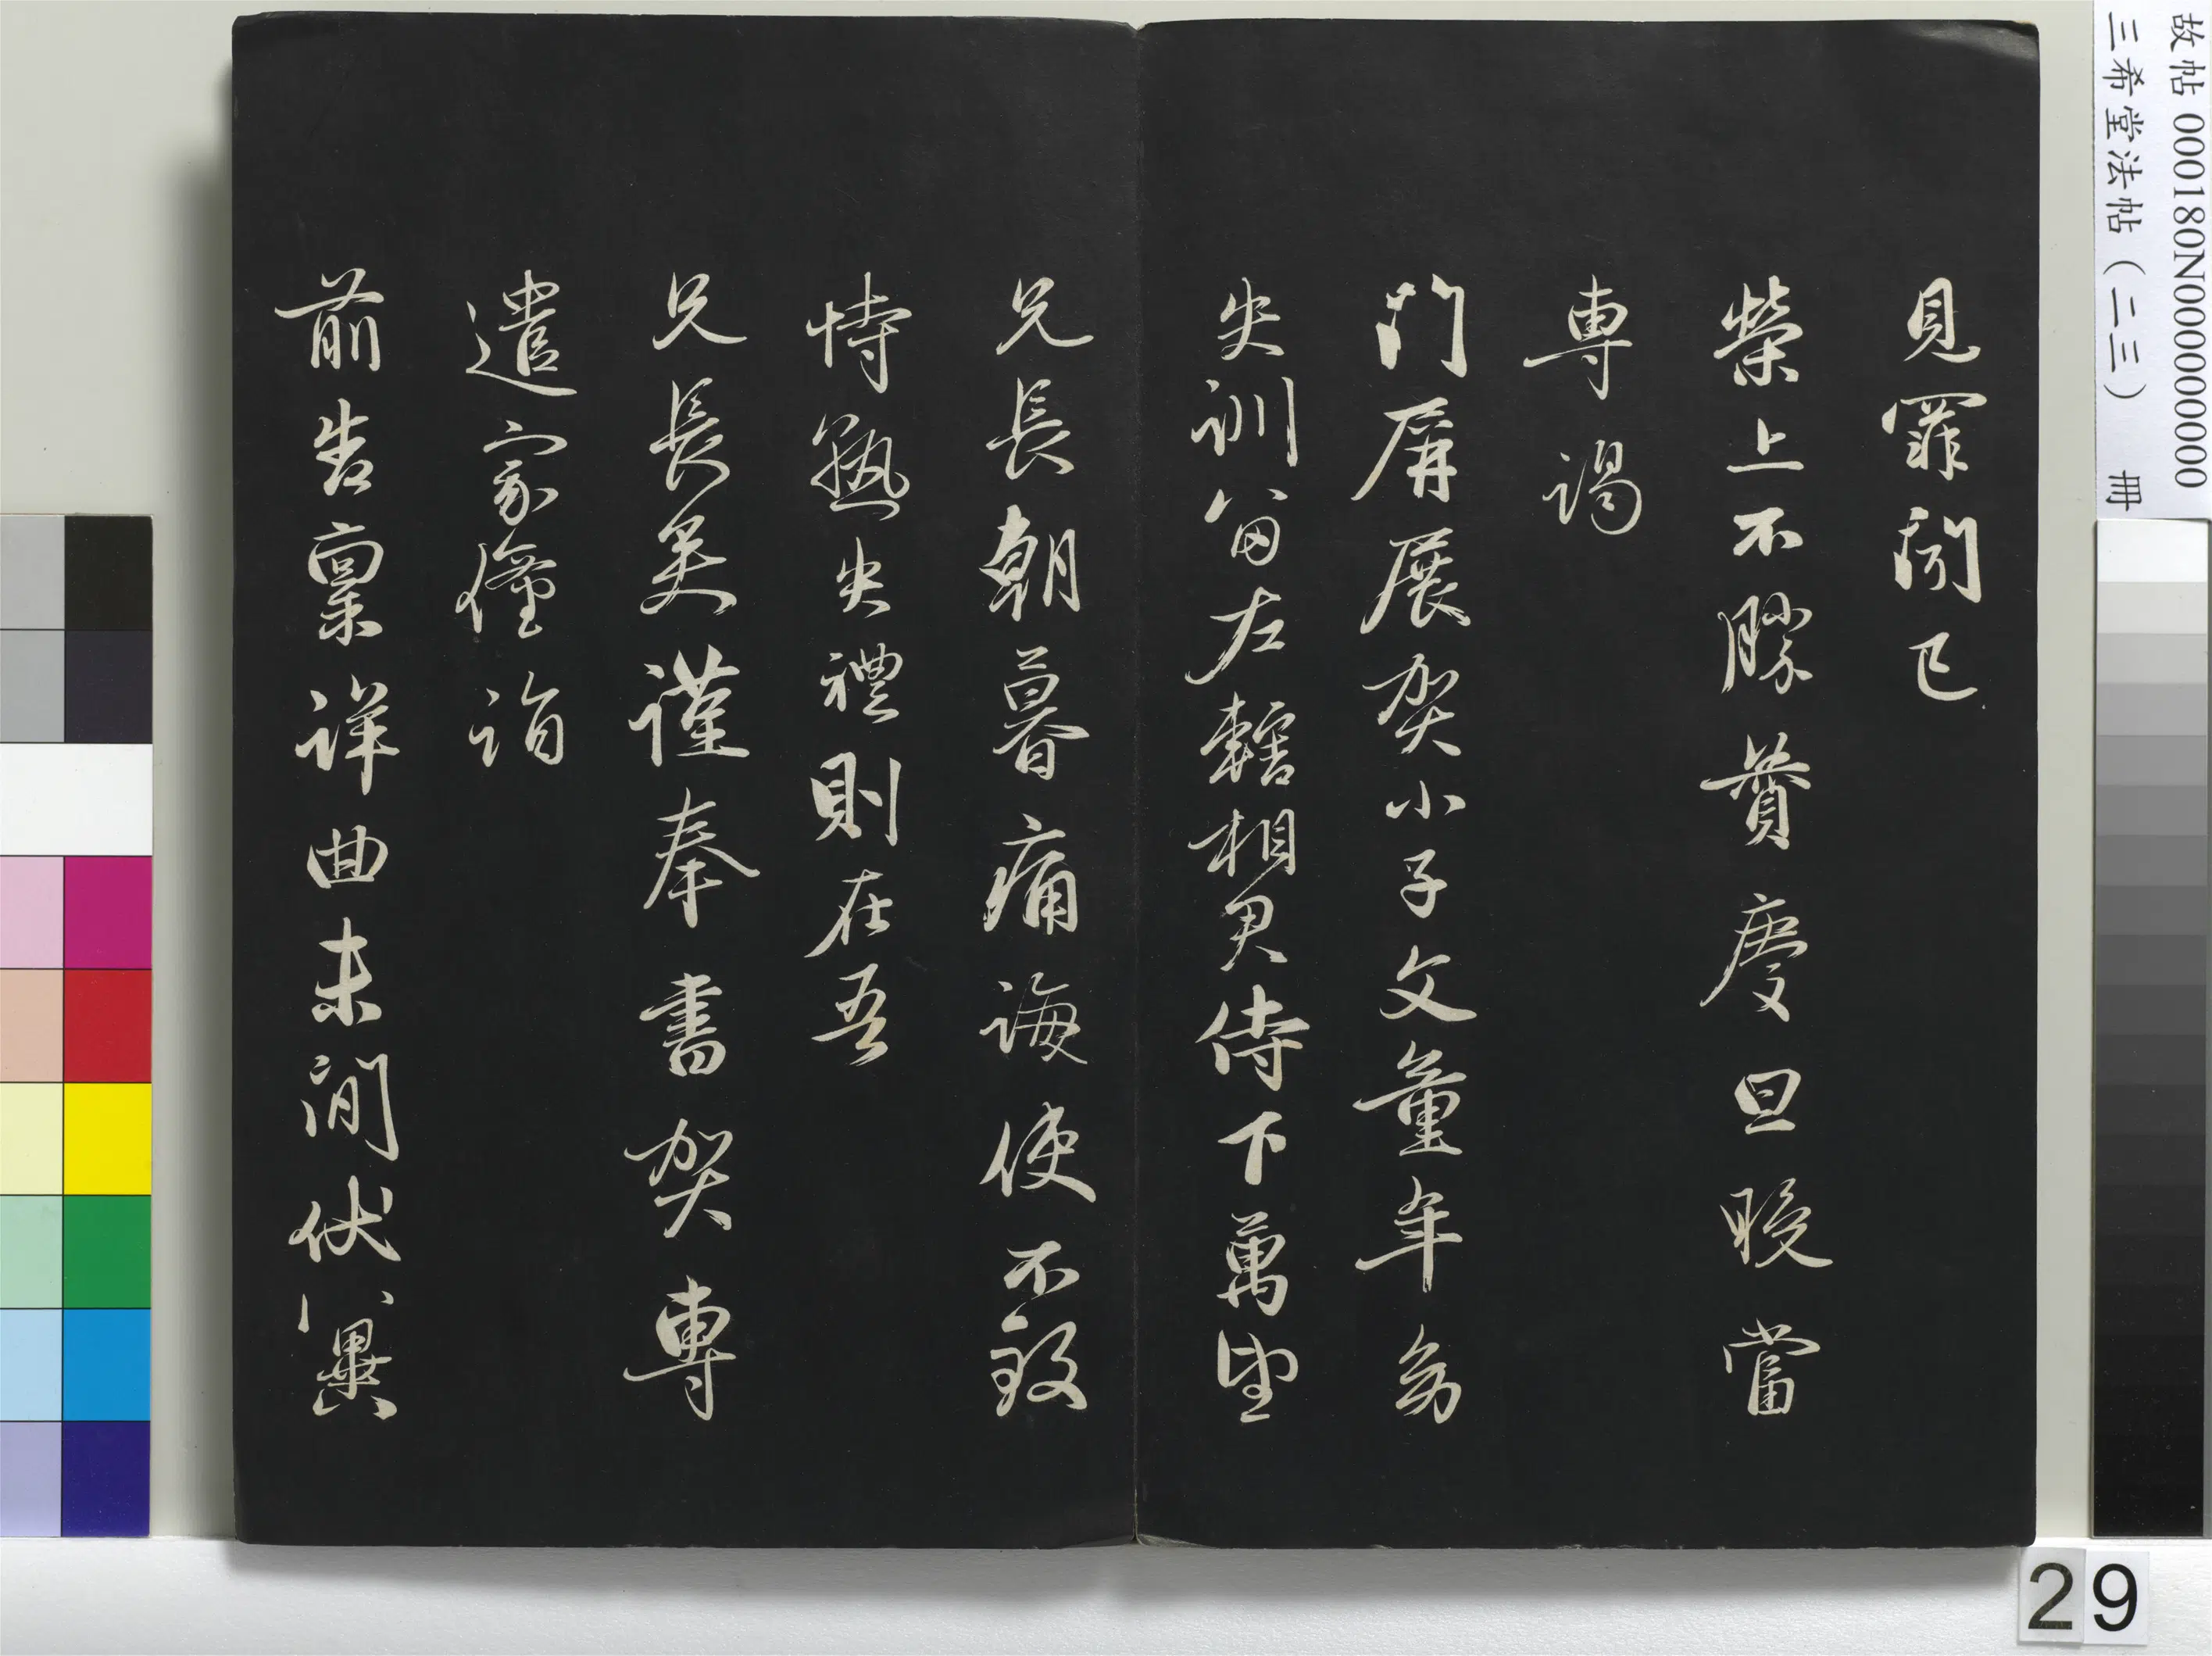 見罪聞已
榮上不勝贊慶旦晚當
專謁
門屏展賀小子文童年幼
失訓旬左轄相君侍下萬望
兄長朝暮痛誨使不致
恃熟失禮則在吾
兄長矣謹奉書賀專
遣家僮詣
前告稟詳曲未間伏冀
故帖 000180N000000000
三希堂法帖（二三） 冊
29